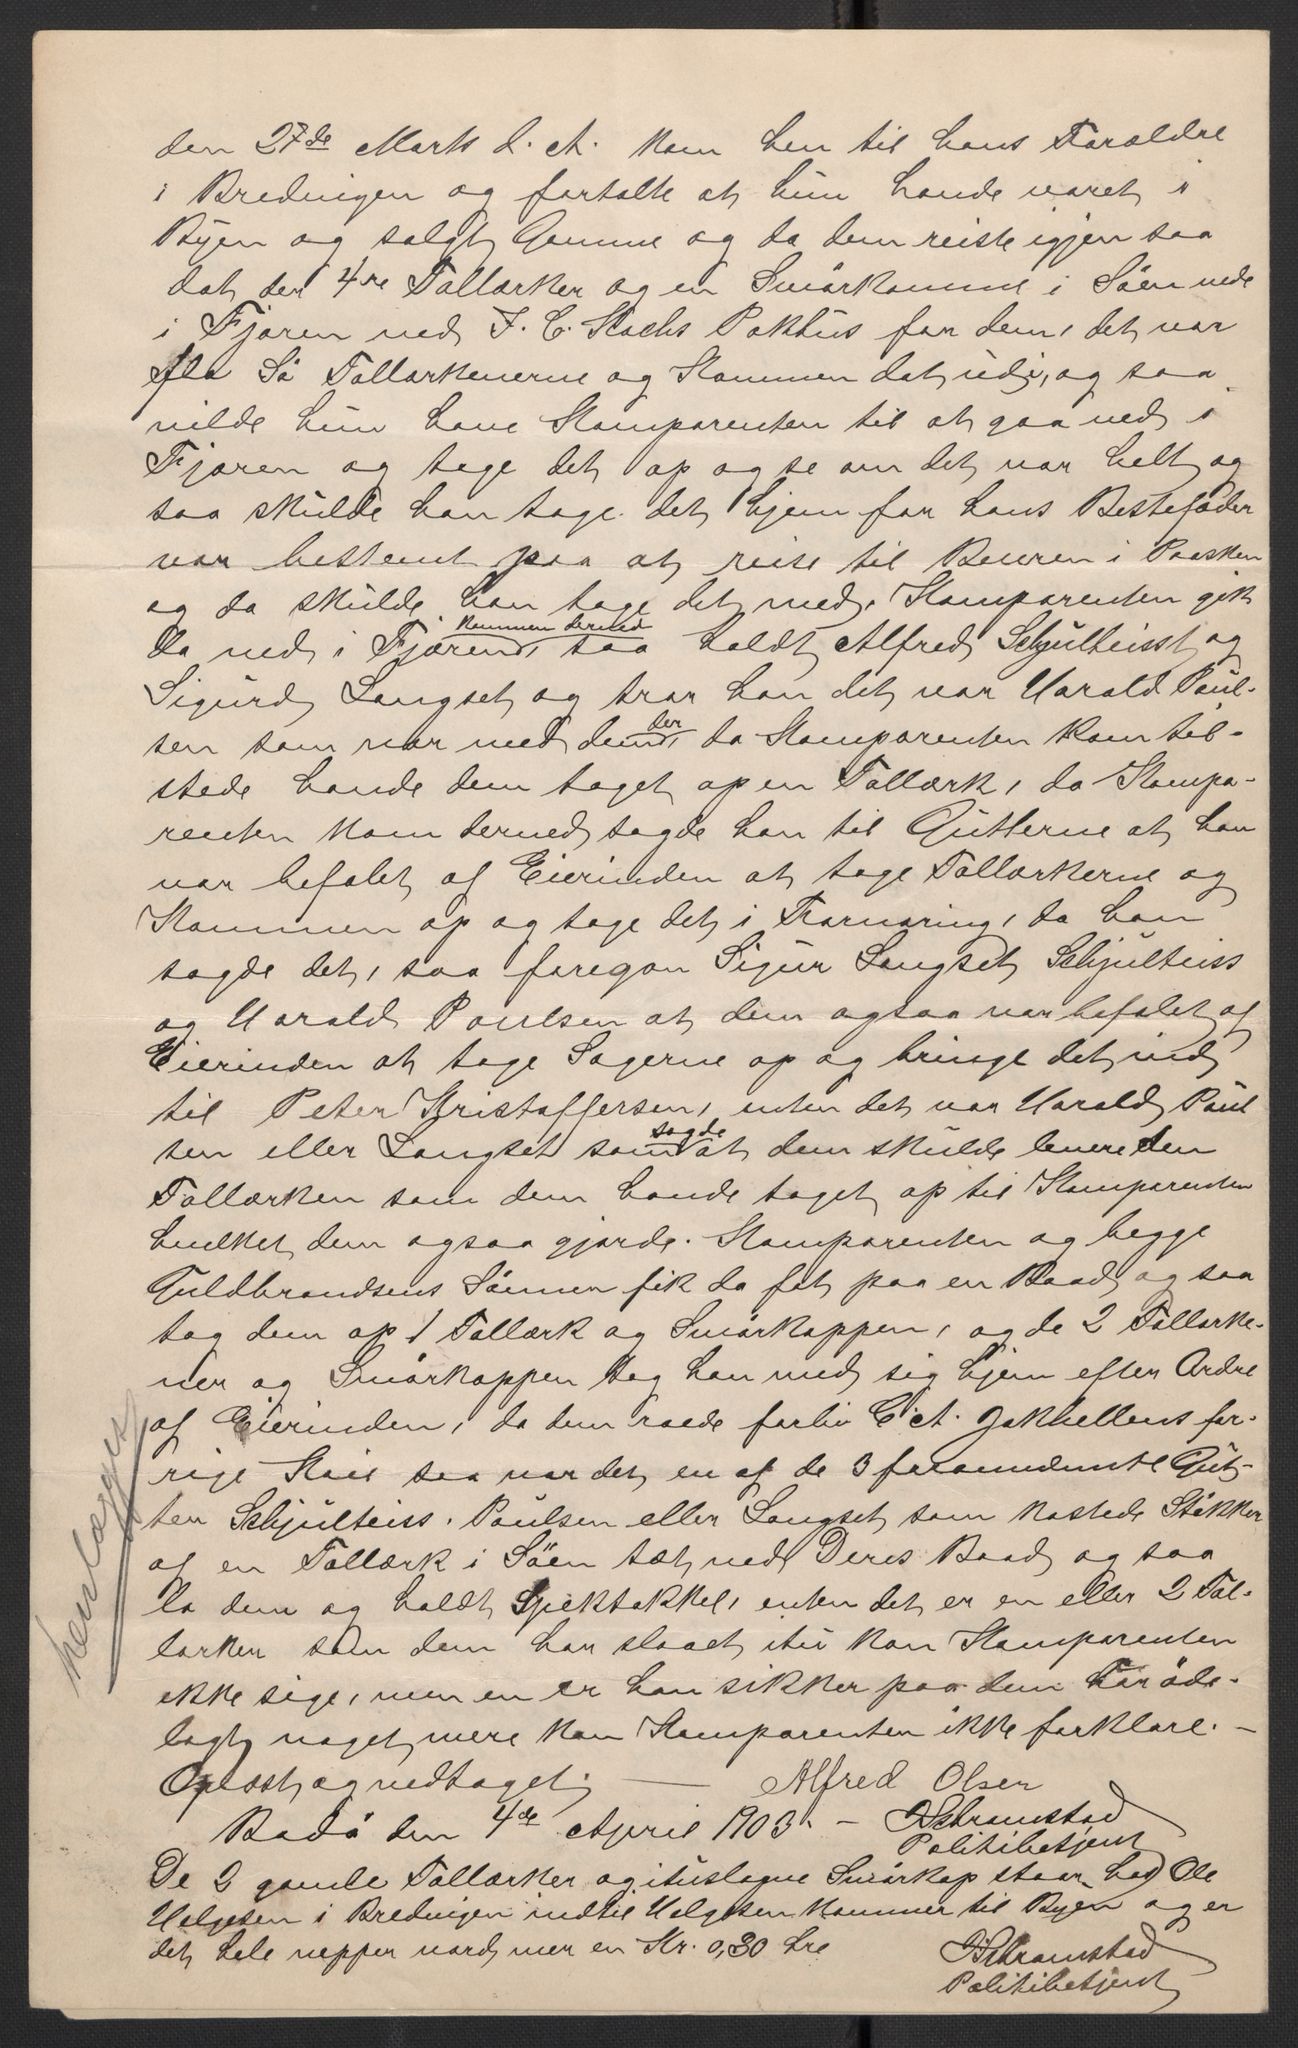 den 27de Marts d. A. kom hen til hans Foroldre
i Bredvigen og fortalte at hun havde varet i
Byen og solgt Gamme og da dem reiste igjen saa
dat der 4re Tallærker og en Smörkomme i Söen nede
i Fjæren ved J. C. Kochs Pakhus for dem, det var
flo Sö Tallærkenerne og Kommen dat udi, og saa
vilde hun have Komparenten til at gaa ned i
Fjæren og tage det op og se om det var helt og
saa skulde han tage det hjem for hans Bestefader
var bestemt paa at reise til Beieren i Paasken
og da skulde han tage det med. Komparenten gik
da ned i Fjæren, kommen derned saa holdt Alfred Schjulteisst og
Sigurd Langset og tror han det var Harald Paul-
sen som var med dem der, da Komparenten kom til-
stede havde dem taget op en Tallærk, da Kompa-
renten kom derned sagde han til Gutterne at han
var befalet af Eierinden at tage Tallærkerne og
Kommen op og tage det i Forvaring, da han
sagde det, saa foregav Sigur Langset Schjulteiss
og Harald Poulsen at dem ogsaa var befalet af
Eierinden at tage Sagerne op og bringe det ind
til Peter Kristoffersen, enten det var Harald Paul
sen eller Langset som sagde at dem skulde levere den
Tallærken som dem havde taget op til Komparenten
hvilket dem ogsaa gjorde. Komparenten og begge
Guldbrandsens Sönner fik da fat paa en Baad og saa
tog dem op 1 Tallærk og Smörkoppen, og de 2 Tallærke-
ner og Smörkoppen tog han med sig hjem efter Ordre
af Eierinden, da dem roede forbi C. A. Jakhellens for-
rige Kaie saa var det en af de 3 forannævnte Gut-
ter Schjulteiss. Paulsen eller Langset som kastede Stökker
af en Tallærk i Söen tæt ved Deres Baad og saa
lo dem og holdt Spektakkel, enten det er en eller 2 Tal-
lærker som dem har slaaet itu kan Komparenten
ikke sige, men en er han sikker paa dem har öde-
lagt, noget mere kan Komparenten ikke forklare. —
Oplæst og vedtaget. — Alfred Olsen
Bodö den 4de April 1903. —
Politibetjent
De 2 gamle Tallærker og ituslagne Smörkop staar hos Ole
Helgesen i Bredvigen indtil Helgesen kommer til Byen og er
det hele neppe værd mer en Kr. 0,30 Öre
Politibetjent
henlægges